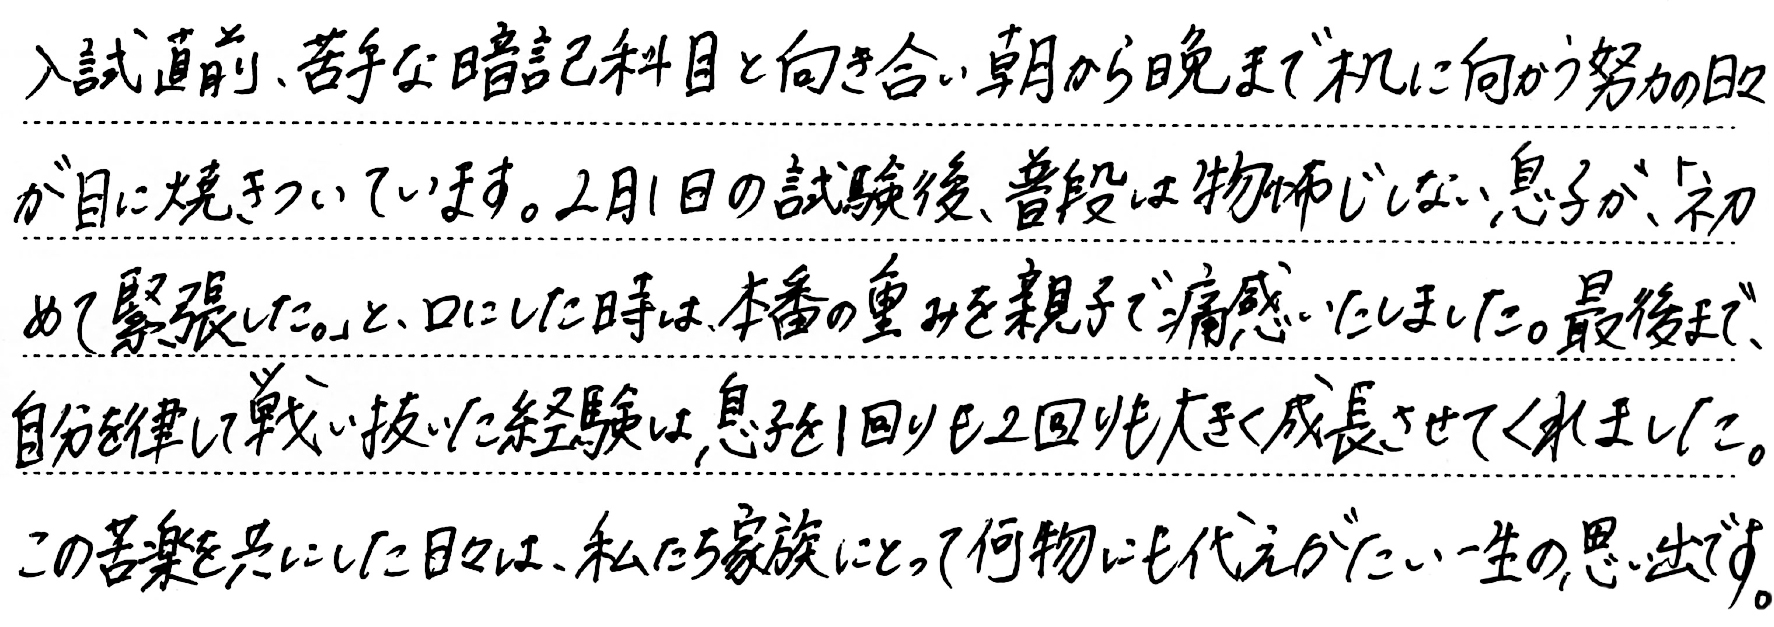 入試直前、苦手な暗記科目と向き合い朝から晩まで机に向かう努力の日々
が目に焼きついています。2月1日の試験後、普段は物怖じしない息子が、「初
めて緊張した。」と、口にした時は、本番の重みを親子で痛感いたしました。最後まで、
自分を律して戦い抜いた経験は、息子を1回りも2回りも大きく成長させてくれました。
この苦楽を共にした日々は、私たち家族にとって何物にも代えがたい一生の思い出です。